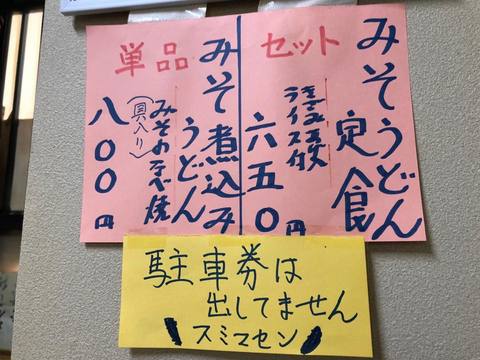 セット
みそうどん
定食
ライス付
六五〇円
単品
みそ煮込み
うどん
みそのなべ焼
(具入り)
八〇〇円
駐車券は
出してません
スミマセン